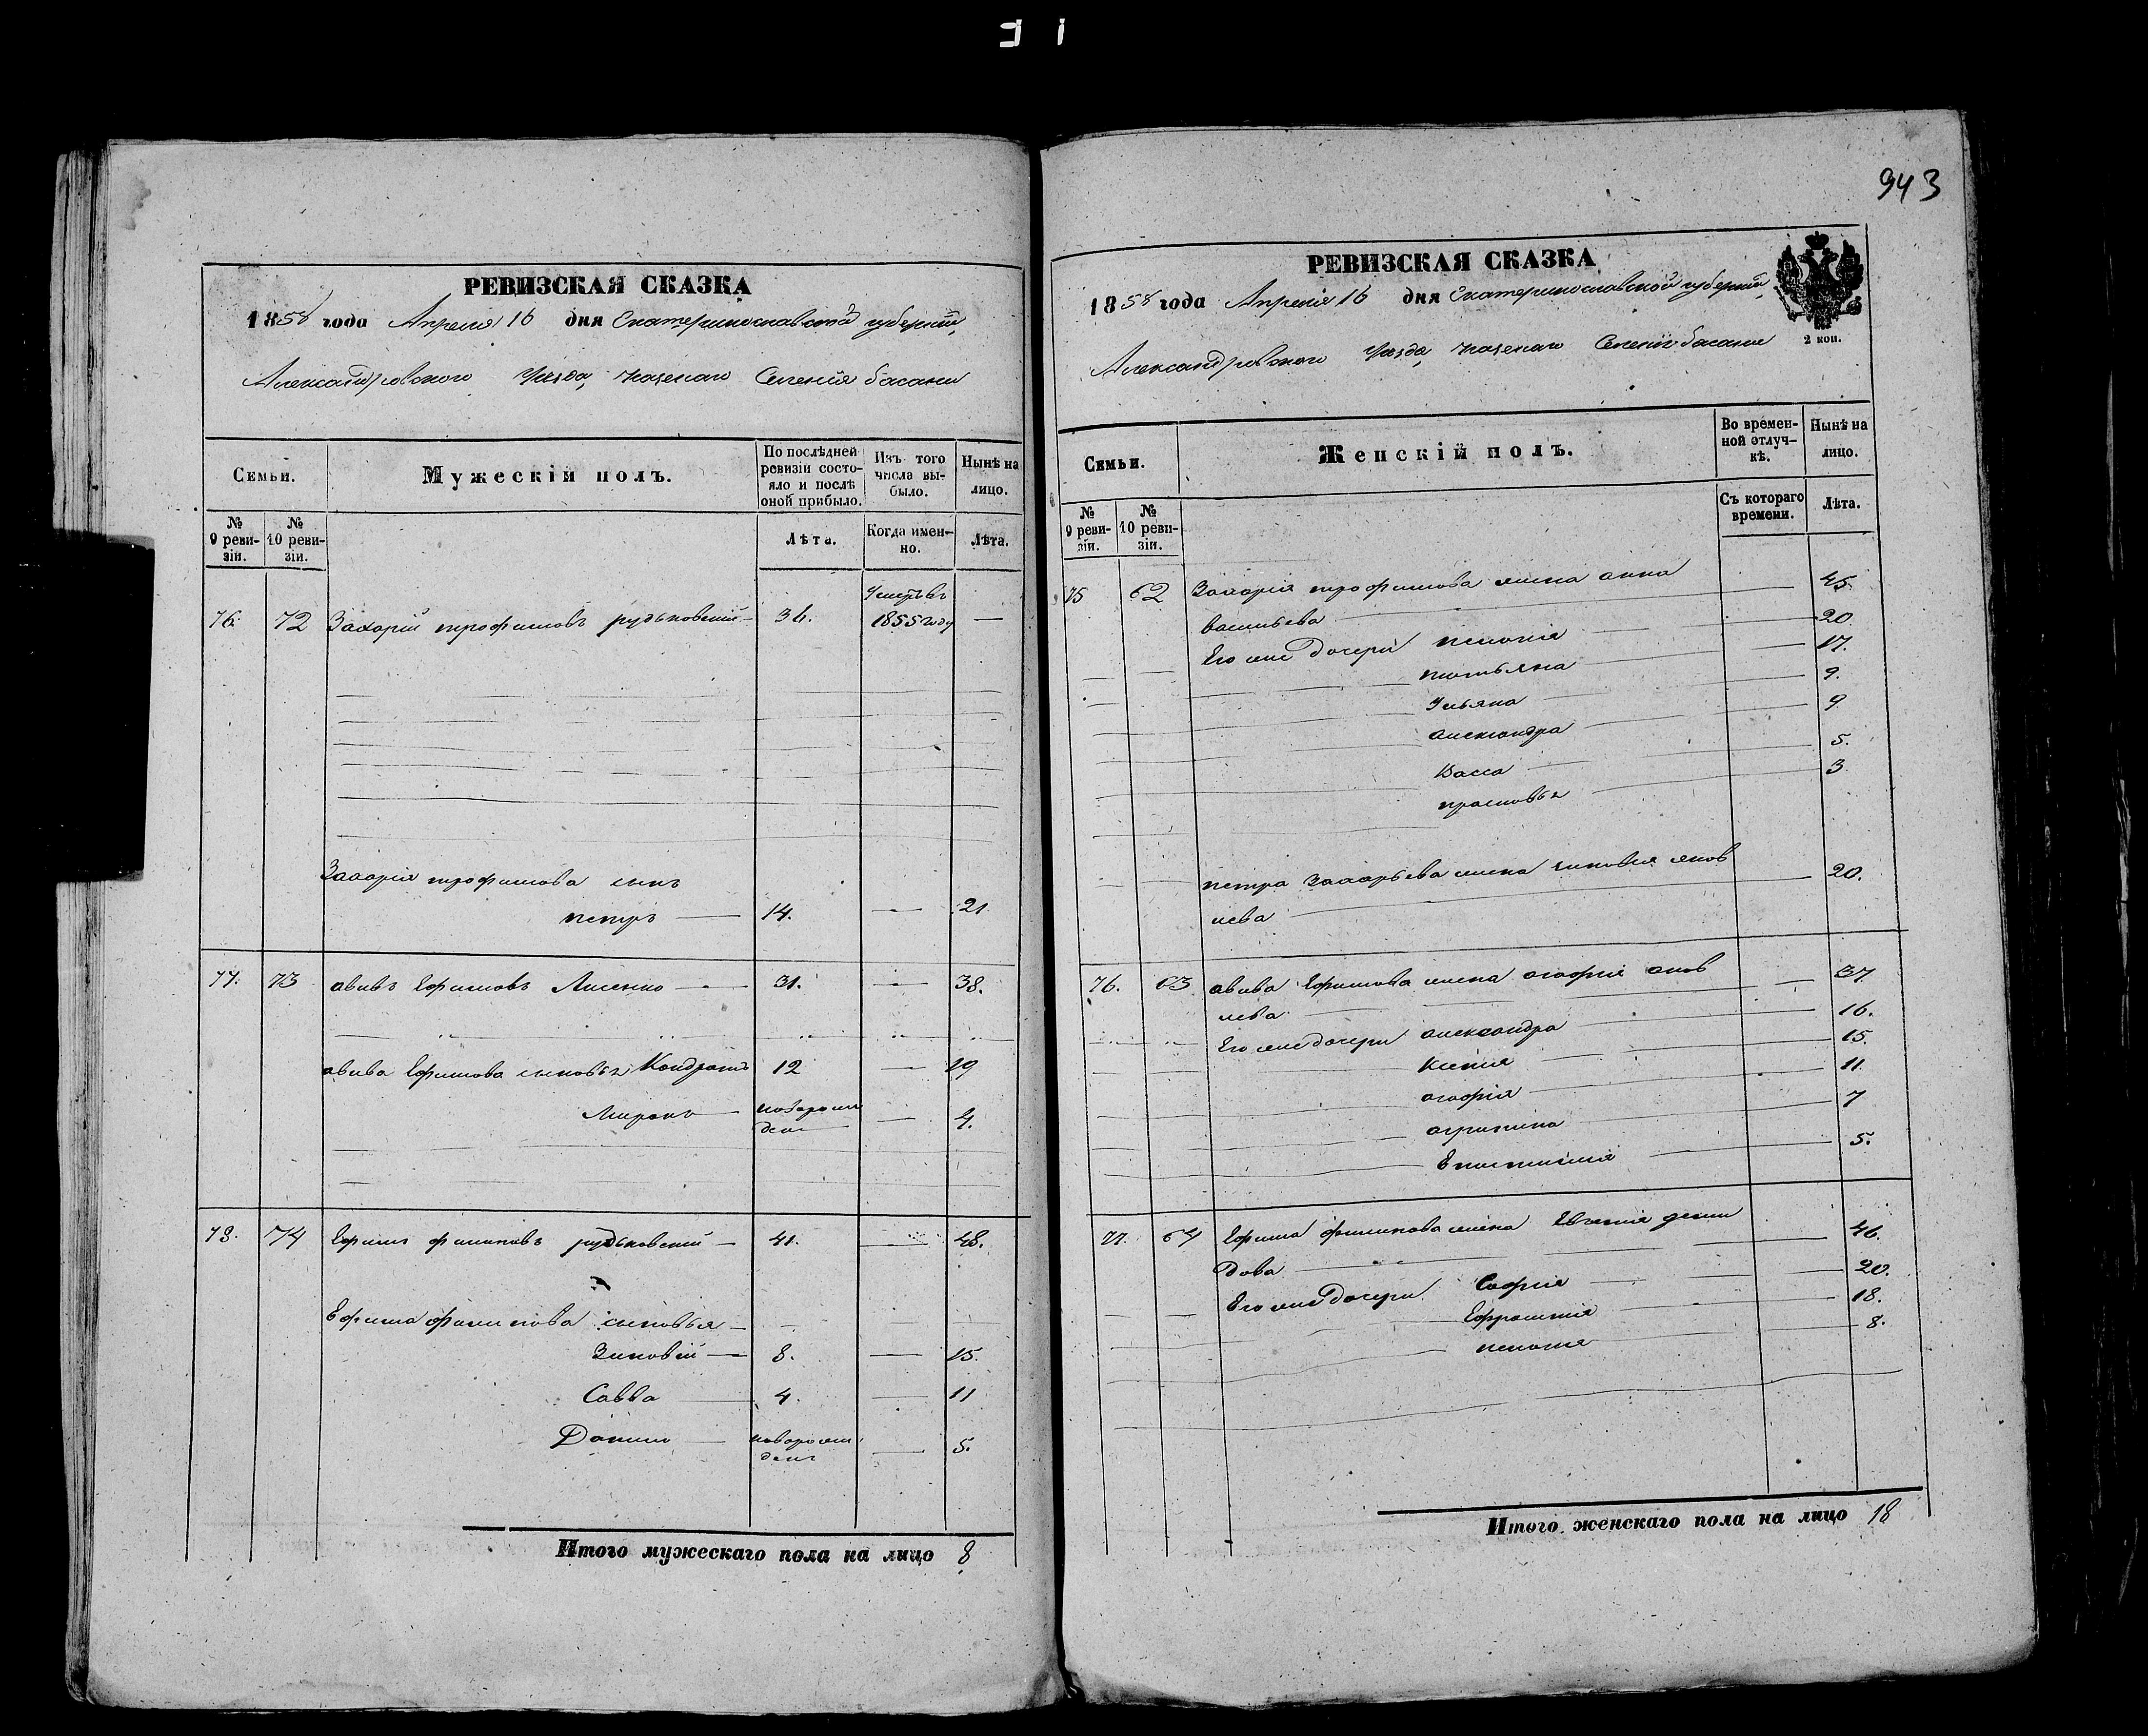 РЕВИЗСКАЯ СКАЗКА
1858 года Апреля 16 дня Екатеринославской губернии,
Александровского Уезда, казенаго Селенія басани
Семьи.
Мужескій полъ.
По послѣдней ревизіи состояло и послѣ оной прибыло.
Изъ того числа выбыло.
Нынѣ на лицо.
№ 9 ревизіи.
№ 10 ревизіи.
Лѣта.
Когда именно.
Лѣта.
76. 72 Захарій трофимовъ рудьковский 36. Умеръ въ 1855 году —
Захарія трофимова сынъ
петръ — 14. — 21.
77. 73 авивъ Ефимовъ Лисенко — 31. — 38.
авива Ефимова сыновья Кондратъ 12 — 19
Миронъ — новорожденъ — 4.
78. 74 Ефимъ филиповъ рудьковский — 41. — 48.
Ефима филипова сыновья —
Зиновій — 8. — 15.
Савва — 4. — 11
Данило — новорожденъ — 5.
Итого мужескаго пола на лицо 8
943
РЕВИЗСКАЯ СКАЗКА
1858 года Апреля 16 дня Екатеринославской губерніи,
Александровского Уезда, казенаго Селенія басани
2 коп.
Семьи.
Женскій полъ.
Во временной отлучкѣ.
Нынѣ на лицо.
№ 9 ревизіи.
№ 10 ревизіи.
Съ котораго времени.
Лѣта.
75 62 Захарія трофимова жена анна — 45.
васильева
Его же дочери пелагія — 20
татьяна — 17.
Ульяна — 9.
александра — 9
Васса — 5.
прасковья — 3
петра Захарьева жена яков
лева — 20.
76. 63 авива Ефимова жена агафія яков — 37.
лева
Его же дочери александра — 16.
Ксенія — 15.
агафія — 11.
агрипина — 7
5.
77. 64 Ефима филипова жена Евгенія деми — 46.
дова
Его же дочери. Софія — 20.
Ефросинія — 18.
пелагія — 8.
Итого женскаго пола на лицо 18